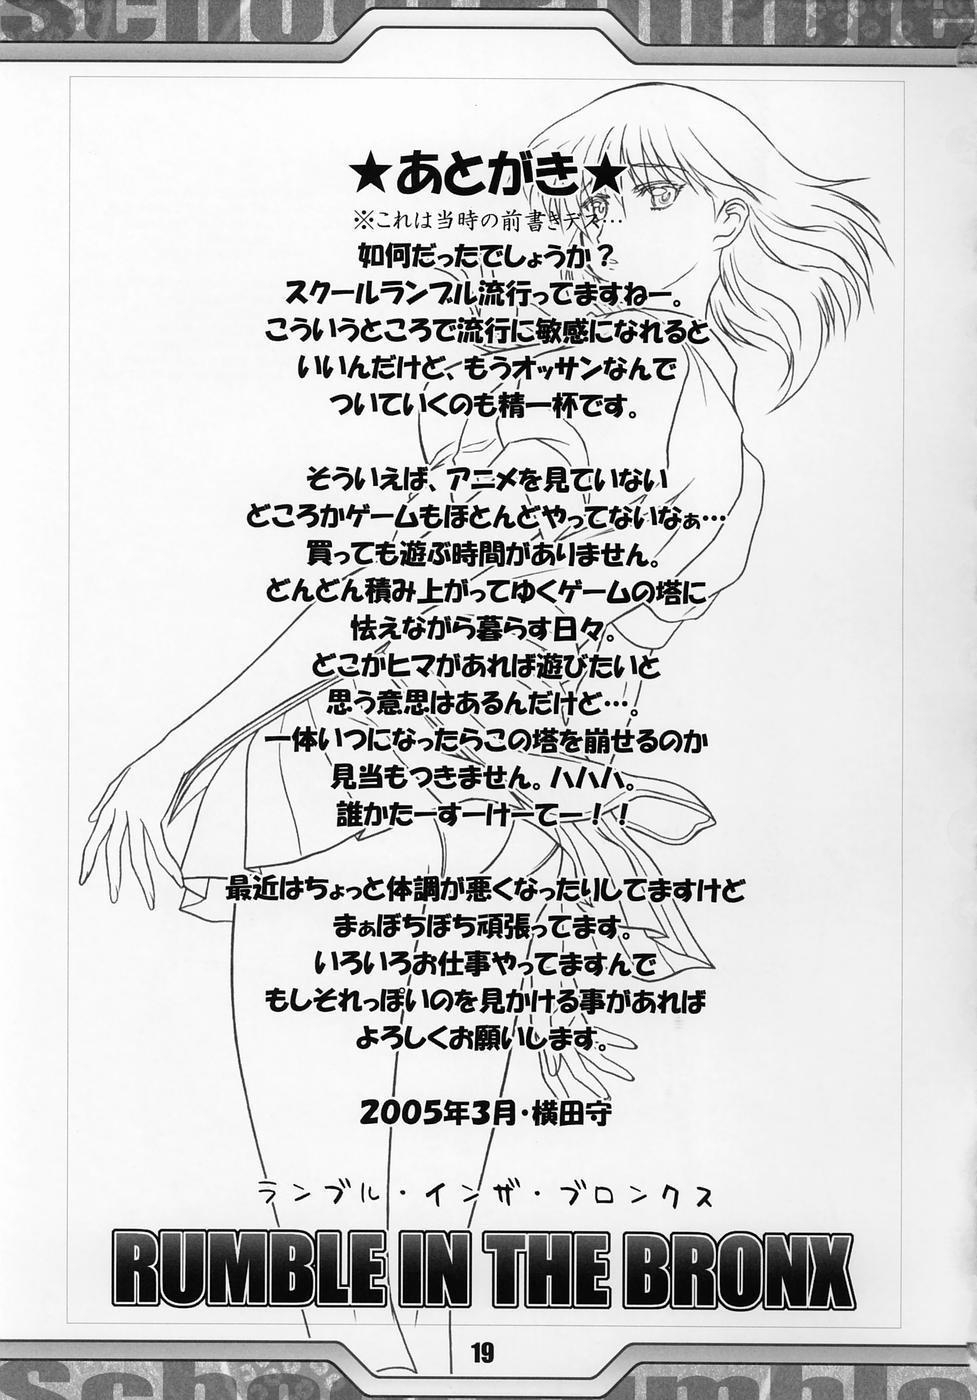 ★あとがき★
※これは当時の前書きデス…
如何だったでしょうか？
スクールランブル流行ってますねー。
こういうところで流行に敏感になれると
いいんだけど、もうオッサンなんで
ついていくのも精一杯です。
そういえば、アニメを見ていない
どころかゲームもほとんどやってないなぁ…
買っても遊ぶ時間がありません。
どんどん積み上がってゆくゲームの塔に
怯えながら暮らす日々。
どこかヒマがあれば遊びたいと
思う意思はあるんだけど…。
一体いつになったらこの塔を崩せるのか
見当もつきません。ハハハ。
誰かたーすーけーてー！！
最近はちょっと体調が悪くなったりしてますけど
まぁぼちぼち頑張ってます。
いろいろお仕事やってますんで
もしそれっぽいのを見かける事があれば
よろしくお願いします。
2005年3月・横田守
ランブル・インザ・ブロンクス
RUMBLE IN THE BRONX
19